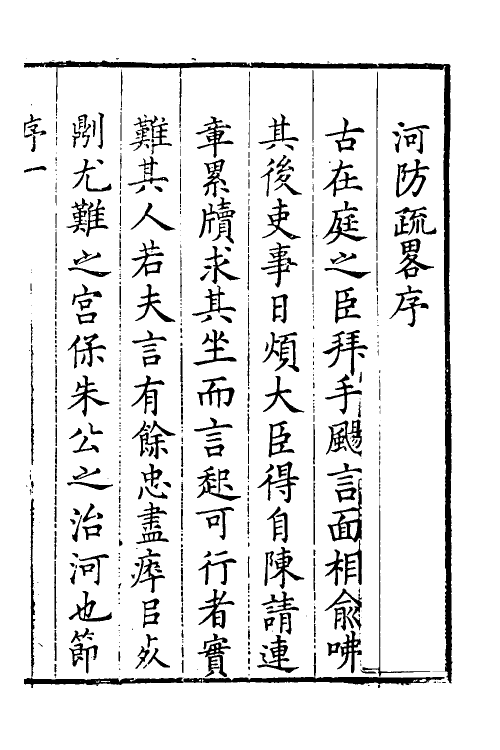 河防疏畧序
古在庭之臣拜手颺言面相俞咈
其後吏事日煩大臣得自陳請連
章累牘求其坐而言起可行者實
難其人若夫言有餘忠盡瘁㠯
劘尤難之宮保朱公之治河也節
序一